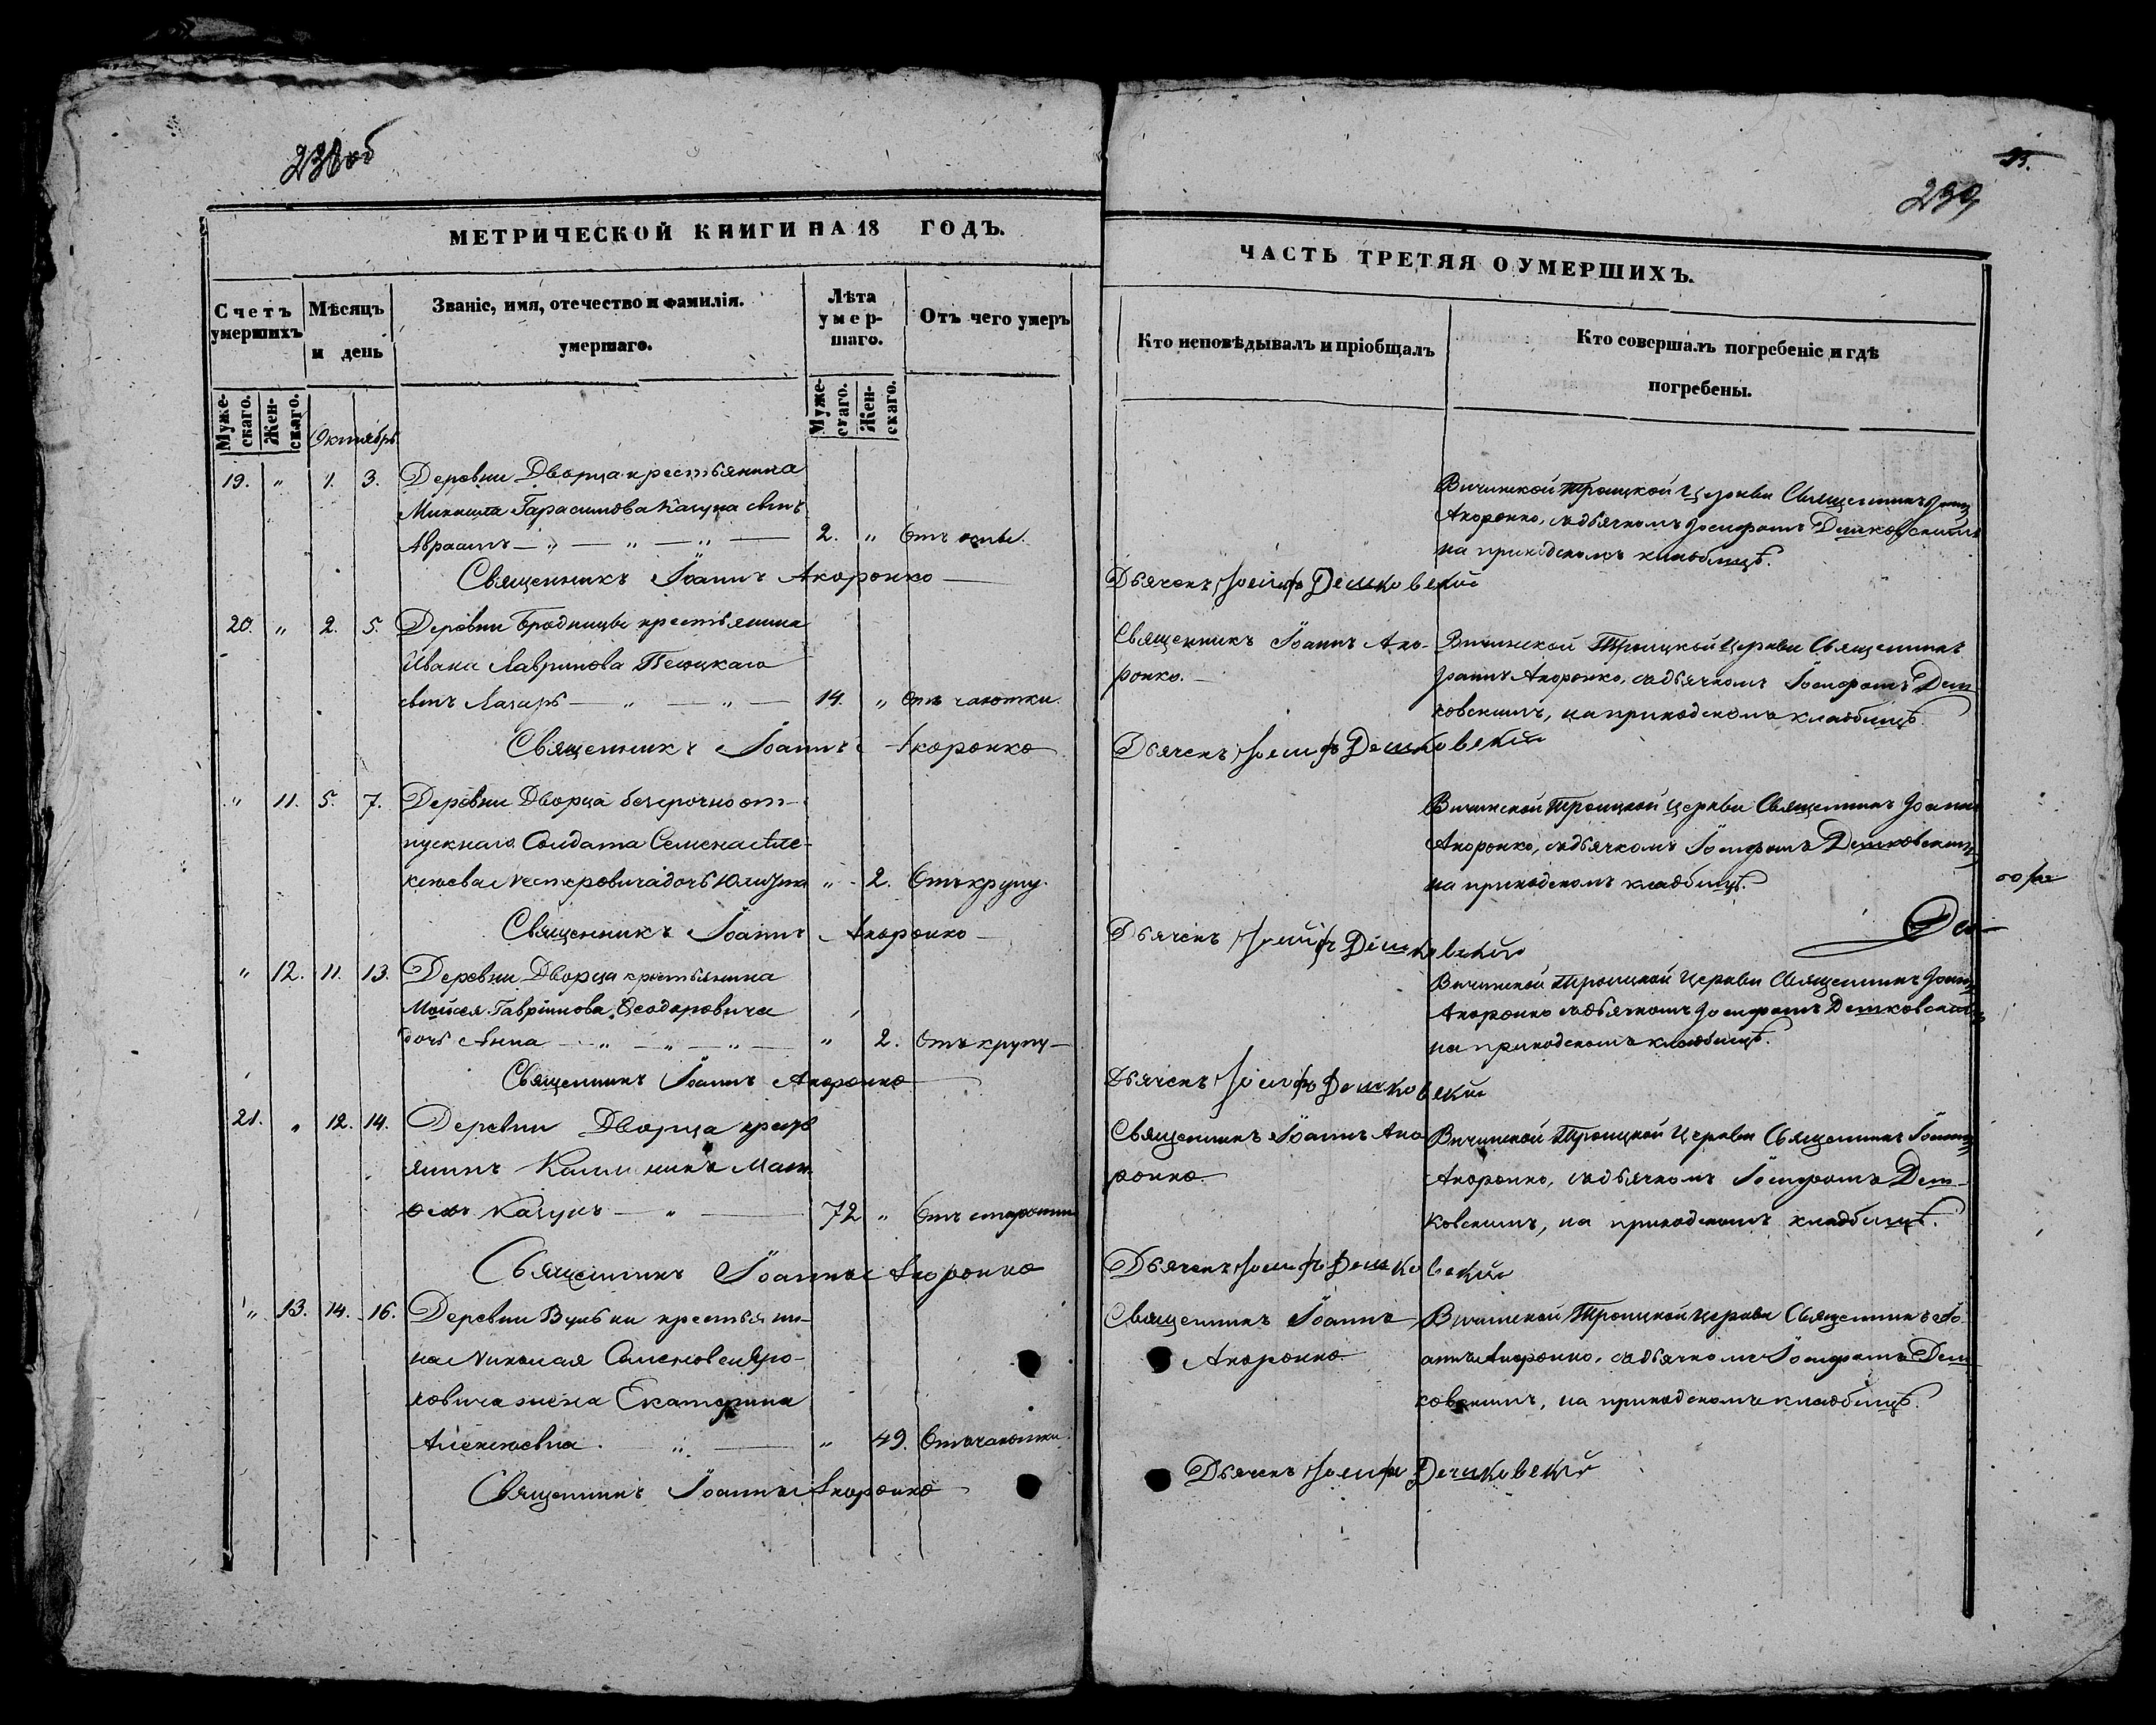 238об
МЕТРИЧЕСКОЙ КНИГИ НА 18 ГОДЪ.
Счетъ умершихъ
Мѣсяцъ и день
Званіе, имя, отечество и фамилія.
умершаго.
Лѣта умер-
шаго.
Отъ чего умеръ
Муже-
скаго.
Жен-
скаго.
Муже-
скаго.
Жен-
скаго.
Октябрь
19. " 1. 3. Деревни Дворца крестьянина
Михаила Гарасимова Качуна сынъ
Авраамъ — " — " — " — 2. " Отъ оспы.
Священникъ Іоаннъ Акоронко
20. " 2. 5. Деревни Бродницы крестьянина
Ивана Лавринова
сынъ Лазарь — " — " — 14. " Отъ чахотки.
Священникъ Іоаннъ Акоронко
" 11. 5. 7. Деревни Дворца безсрочноот-
пускнаго Солдата Семена Але-
ксѣева Нестеровича дочь Юлиѳта " 2. Отъ крупу.
Священникъ Іоаннъ Акоронко
" 12. 11. 13. Деревни Дворца крестьянина
Мойсея Гавріилова Ѳеодоровича
дочь Анна — " — " — " — " 2. Отъ крупу
Священникъ Іоаннъ Акоронко
21. " 12. 14. Деревни Дворца кресть
янинъ Калинникъ Мат
ѳеевъ Качунъ — " — 72 " Отъ старости
Священникъ Іоаннъ Акоронко
" 13. 14. 16. Деревни Вульки крестьяни-
на Николая Семенова
жена Екатерина
Алексѣевна. " — " 49. Отъ чахотки.
Священникъ Іоаннъ Акоронко
239
ЧАСТЬ ТРЕТЯЯ О УМЕРШИХЪ.
Кто исповѣдывалъ и пріобщалъ
Кто совершалъ погребеніе и гдѣ
погребены.
Вичинской Троицкой Церкви Священникъ Іоаннъ
Акоронко, съ дьячкомъ Іосифомъ Дешковскимъ
на приходскомъ кладбищѣ.
Дьячекъ Іосифъ Дешковскій
Священникъ Іоаннъ Ако-
ронко.
Вичинской Троицкой Церкви Священникъ
Іоаннъ Акоронко, съ дьячкомъ Іосифомъ Деш
ковскимъ, на приходскомъ кладбищѣ.
Дьячекъ Іосифъ Дешковскій
Вичинской Троицкой Церкви Священникъ Іоаннъ
Акоронко, съ дьячкомъ Іосифомъ Дешковскимъ
на приходскомъ кладбищѣ.
Дьячекъ Іосифъ Дешковскій
Вичинской Троицкой Церкви Священникъ Іоаннъ
Акоронко съ дьячкомъ Іосифомъ Дешковскимъ
на приходскомъ кладбищѣ.
Дьячекъ Іосифъ Дешковскій
Священникъ Іоаннъ Ако
ронко.
Вичинской Троицкой Церкви Священникъ Іоаннъ
Акоронко, съ дьячкомъ Іосифомъ Деш-
ковскимъ, на приходскомъ кладбищѣ.
Дьячекъ Іосифъ Дешковскій
Священникъ Іоаннъ
Акоронко.
Вичинской Троицкой Церкви Священникъ Іо
аннъ Акоронко, съ дьячкомъ Іосифомъ Деш
ковскимъ, на приходскомъ кладбищѣ.
Дьячекъ Іосифъ Дешковскій